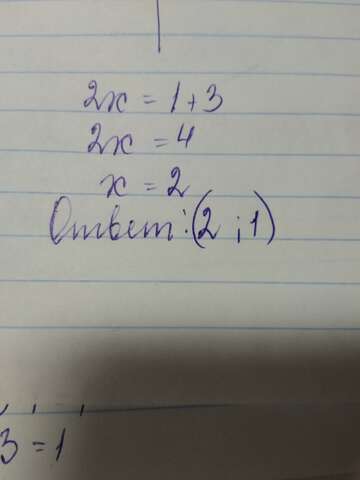 2x = 1+3
2x = 4
x = 2
Ответ: (2 ; 1)
3 = 1